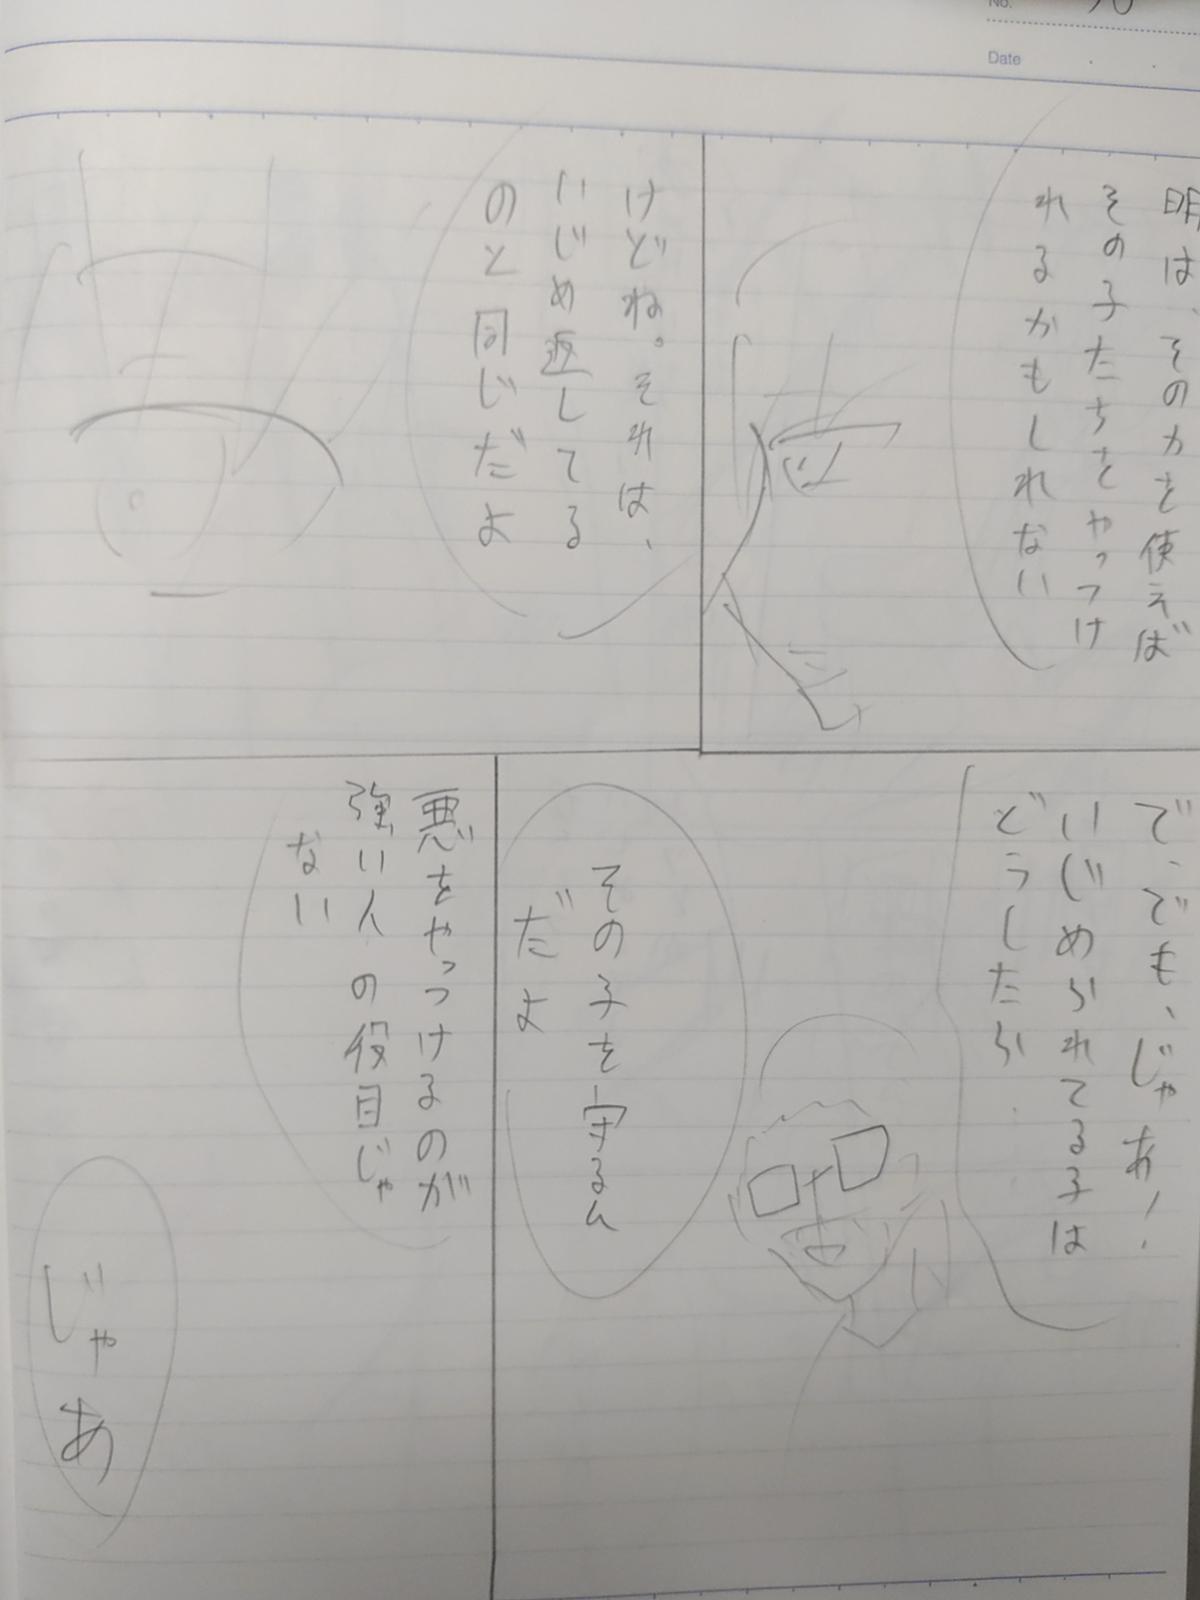 No.
Date
明は、その力を使えば
その子たちをやっつけ
れるかもしれない
けどね。それは、
いじめ返してる
のと同じだよ
で、でも、じゃあ!
いじめられてる子は
どうしたら
その子を守るん
だよ
悪をやっつけるのが
強い人の役目じゃ
ない
じゃあ